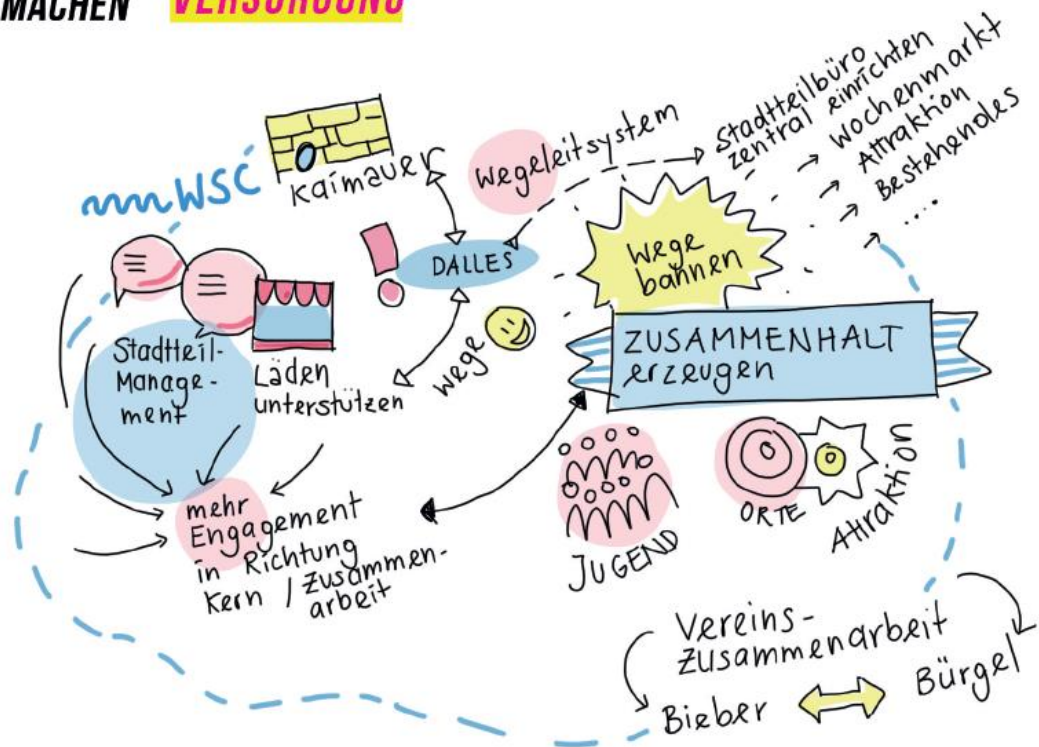 MACHEN VERSORGUNG
WSC
Kaimauer
Wegeleitsystem
Stadtteilbüro
zentral einrichten
Wochenmarkt
Attraktion
Bestehendes
....
DALLES
Wege
bahnen
wege
ZUSAMMENHALT
erzeugen
Stadtteil-
Manage-
ment
Läden
unterstützen
mehr
Engagement
in Richtung
Kern / Zusammen-
arbeit
JUGEND
ORTE
Attraktion
Vereins-
zusammenarbeit
Bieber
Bürgel